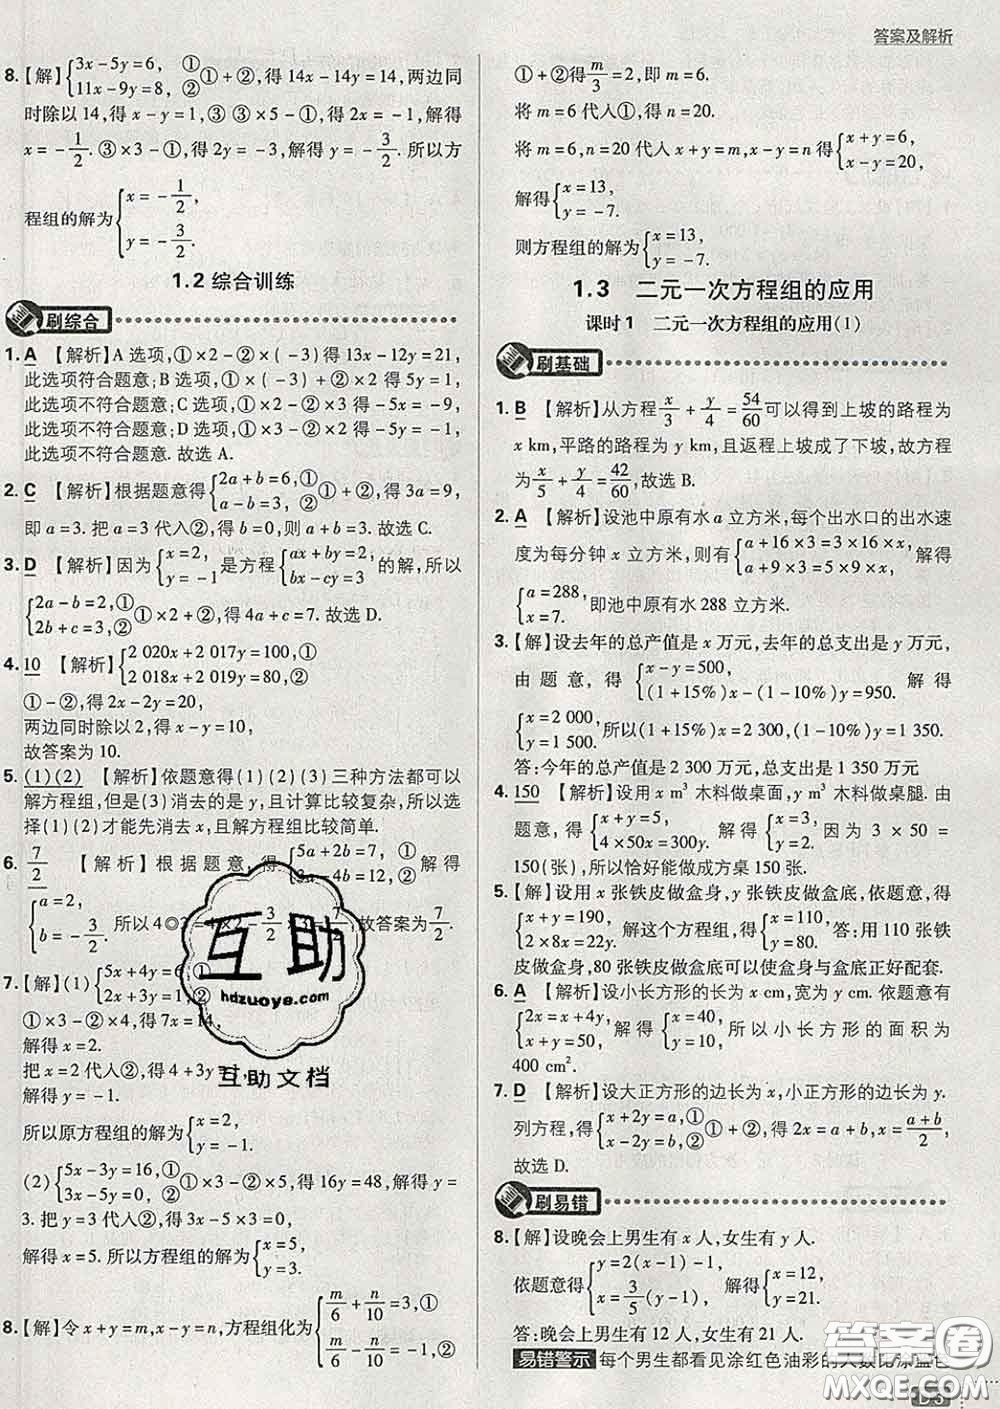 答案及解析
8.【解】{3x-5y=6, ① 11x-9y=8, ② ①+②,得 14x-14y=14,两边同
时除以 14,得 x-y=1,③ ③×5-①,得-2x=-1,解得
x=-1/2. ③×3-①,得 2y=-3,解得 y=-3/2. 所以方
程组的解为{x=-1/2, y=-3/2.
1.2 综合训练
刷综合
1. A 【解析】A 选项,①×2-②×(-3)得 13x-12y=21,
此选项符合题意;B 选项,①×(-3)+②×2 得-5y=9,
此选项不符合题意;C 选项,①×2-②×3 得-5x=-9,
此选项不符合题意;D 选项,①×2-②×3 得-5x=-9,
此选项不符合题意. 故选 A.
2. C 【解析】根据题意得{2a+b=6,① a-b=3,② ①+②,得 3a=9,
即 a=3. 把 a=3 代入②,得 b=0,则 a+b=3. 故选 C.
3. D 【解析】因为{x=2, y=-1 是方程{ax+by=2, bx-cy=3 的解,所以
{2a-b=2,① 2b+c=3,② ①×2+②,得 4a+c=7. 故选 D.
4. 10 【解析】{2 020x+2 017y=100,① 2 018x+2 019y=80,②
①-②,得 2x-2y=20,
两边同时除以 2,得 x-y=10,
故答案为 10.
5. (1)(2) 【解析】依题意得(1)(2)(3)三种方法都可以
解方程组,但是(3)消去的是 y,且计算比较复杂,所以选
择(1)(2)才能先消去 x,且解方程组比较简单.
6. 7/2 【解析】根据题意,得{5a+2b=7,① 3a-4b=16,② 解得
{a=2, b=-3/2. 所以 4◎3=4×2-3/2×3=7/2,故答案为 7/2.
7.【解】(1){5x+4y=6,① 2x+3y=1,②
①×3-②×4,得 7x=14,
解得 x=2.
把 x=2 代入②,得 4+3y=1,
解得 y=-1.
所以原方程组的解为{x=2, y=-1.
(2){5x-3y=16,① 5x-5y=10,② ①×3-②,得 16y=48,解得 y=
3. 把 y=3 代入②,得 3x-9=6,
解得 x=5. 所以方程组的解为{x=5, y=3.
8.【解】令 x+y=m,x-y=n,方程组化为{m/6+n/10=3,① m/6-n/10=-1,②
①+②得 m/3=2,即 m=6.
将 m=6 代入①,得 n=20.
将 m=6,n=20 代入 x+y=m,x-y=n 得{x+y=6, x-y=20,
解得{x=13, y=-7.
则方程组的解为{x=13, y=-7.
1.3 二元一次方程组的应用
课时 1 二元一次方程组的应用(1)
刷基础
1. B 【解析】从方程 x/3+y/4=54/60 可以得到上坡的路程为
x km,平路的路程为 y km,且返程上坡成了下坡,故方程
为 x/5+y/4=42/60,故选 B.
2. A 【解析】设池中原有水 a 立方米,每个出水口的出水速
度为每分钟 x 立方米,则有{a+16×3=3×16x, a+9×3=5×9x, 解得
{a=288, x=7. 即池中原有水 288 立方米.
3.【解】设去年的总产值是 x 万元,去年的总支出是 y 万元,
由题意,得{x-y=500, (1+15%)x-(1-10%)y=950. 解得
{x=2 000, y=1 500. 所以(1+15%)x=2 300,(1-10%)y=1 350.
答:今年的总产值是 2 300 万元,总支出是 1 350 万元
4. 150 【解析】设用 x m³ 木料做桌面,y m³ 木料做桌腿. 由
题意,得{x+y=5, 4×50x=300y. 解得{x=3, y=2. 因为 3×50=
150(张),所以恰好能做成方桌 150 张.
5.【解】设用 x 张铁皮做盒身,y 张铁皮做盒底,依题意,得
{x+y=190, 2×8x=22y. 解这个方程组,得{x=110, y=80. 答:用 110 张铁
皮做盒身,80 张铁皮做盒底可以使盒身与盒底正好配套.
6. A 【解析】设小长方形的长为 x cm,宽为 y cm. 依题意有
{2x=x+4y, x+y=50, 解得{x=40, y=10. 所以小长方形的面积为
400 cm².
7. D 【解析】设大正方形的边长为 x,小正方形的边长为 y.
列方程,得{x+2y=a,① x-2y=b,② ①+②,得 2x=a+b,x=(a+b)/2,
故选 D.
刷易错
8.【解】设晚会上男生有 x 人,女生有 y 人.
依题意得{y=2(x-1)-1, x=3/5(y-1). 解得{x=12, y=21.
答:晚会上男生有 12 人,女生有 21 人.
易错警示 每个男生都看见涂红色油彩的人数比涂蓝色
D 3
互助
hdzuoye.com
互助文档
答案圈
MXQE.COM